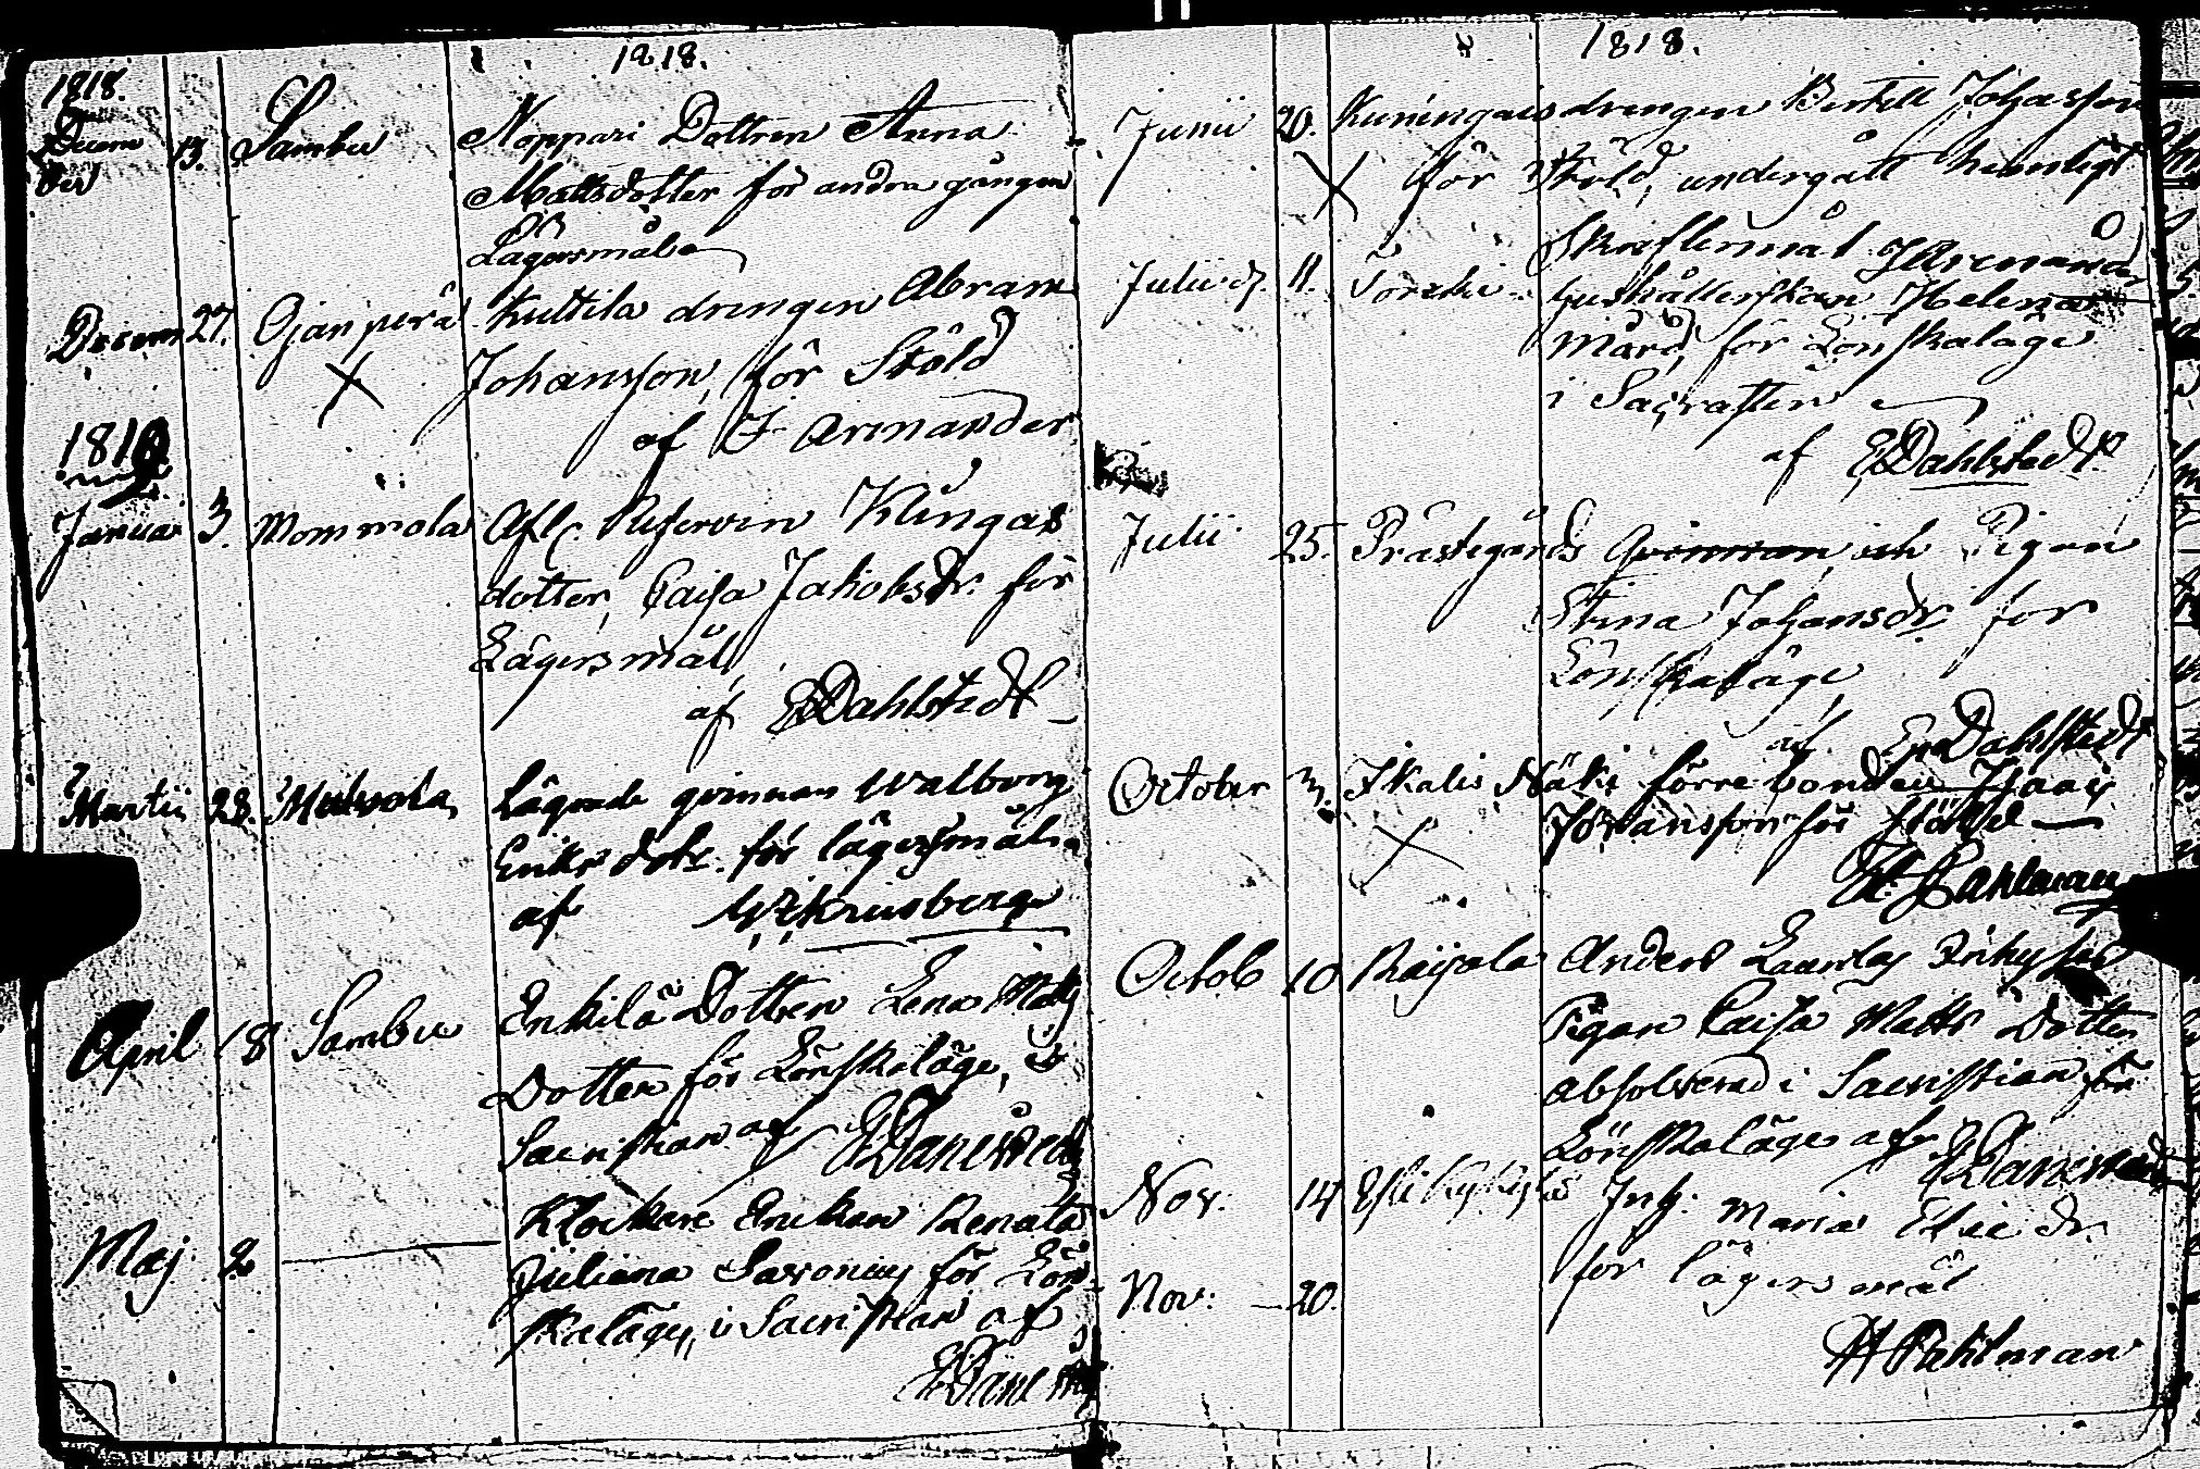 1818.
1818.
Decem
ber 13. Sambu Noppari Dottren Anna
Mattsdotter för andra gången
Lägersmål
Decem 27. Ojanperä Kuttila drengen Abram
Johansson, för Stöld
af J Armander
Januari 3. Mommola Afl. Reserven Klingas
dotter, Caisa Jakobsdr. för
Lägersmål,
af EDahlstedt
Martii 28. Lägrade qvinnan Walborg
Eriks dotr. för lägersmål.
af
April 18 Sambu Enkilä Dotter Lena Matts
Dotter för Lönskaläge, i
Sacristian af
Maj 2 Klockare Enckan Renata
Juliana Saxonius för Lön-
skaläge, i Sacristian af
1818.
Junii 20. Kuningais drengen Bertell Johansson
för Stöld, undergått hemligt
Skriftermål
Julii d. 11. hushållerskan Helena
Mård, för Lönskaläge
i Sacratien
af EDahlstedt
Julii 25. Prästegårds Qvinnan och Pigan
Stina Johansdr för
Lönskaläge
af Dahlstedt
October 3. Ikalis Mäki förre bonden Isaac
Johansson för stöld
Octob 10 Raijala Anders
Pigan Caisa Matts Dotter
absolverad i Sacristian för
Lönskaläge af
Nov. 14 Inh. Maria Eric dr.
för lägersmål
Nov. 20.
HPahlman